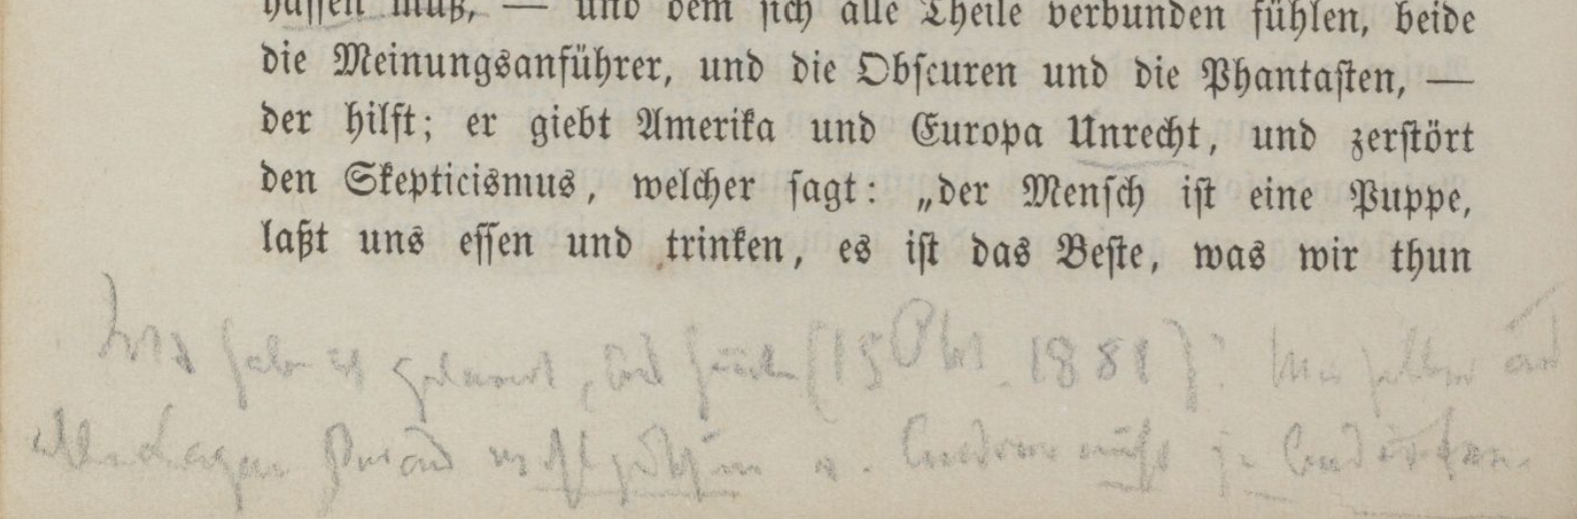 hassen muß, — und dem sich alle Theile verbunden fühlen, beide
die Meinungsanführer, und die Obscuren und die Phantasten, —
der hilft; er giebt Amerika und Europa Unrecht, und zerstört
den Skepticismus, welcher sagt: „der Mensch ist eine Puppe,
laßt uns essen und trinken, es ist das Beste, was wir thun
Was habe ich gelernt, bis heute (15 Okt. 1881)? Mir selber aus
allen Lagen heraus wohlzuthun u. Anderer nicht zu bedürfen.